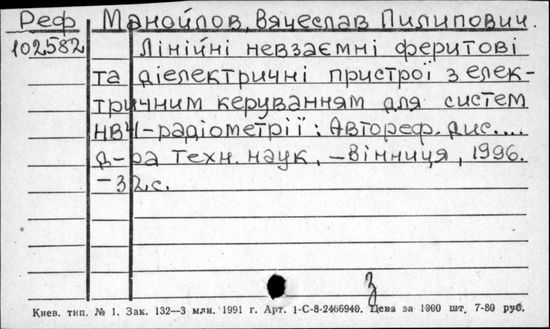 Реф Манойлов, Вячеслав Пилипович.
102582 Лінійні невзаємні феритові
та діелектричні пристрої з елек-
тричним керуванням для систем
НВЧ-радіометрії: Автореф. дис....
д-ра техн. наук, – Вінниця, 1996.
– 32 с.
з
Киев. тип. № 1. Зак. 132—3 млн. 1991 г. Арт. 1-С-8-2466940. Цена за 1000 шт. 7-80 руб.